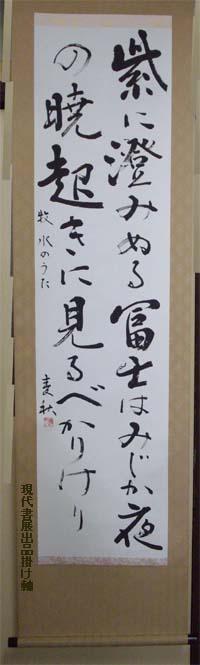 紫に澄みぬる冨士はみじか夜
の暁起きに見るべかりけり
牧水のうた
麦秋
現代書展出品掛け軸